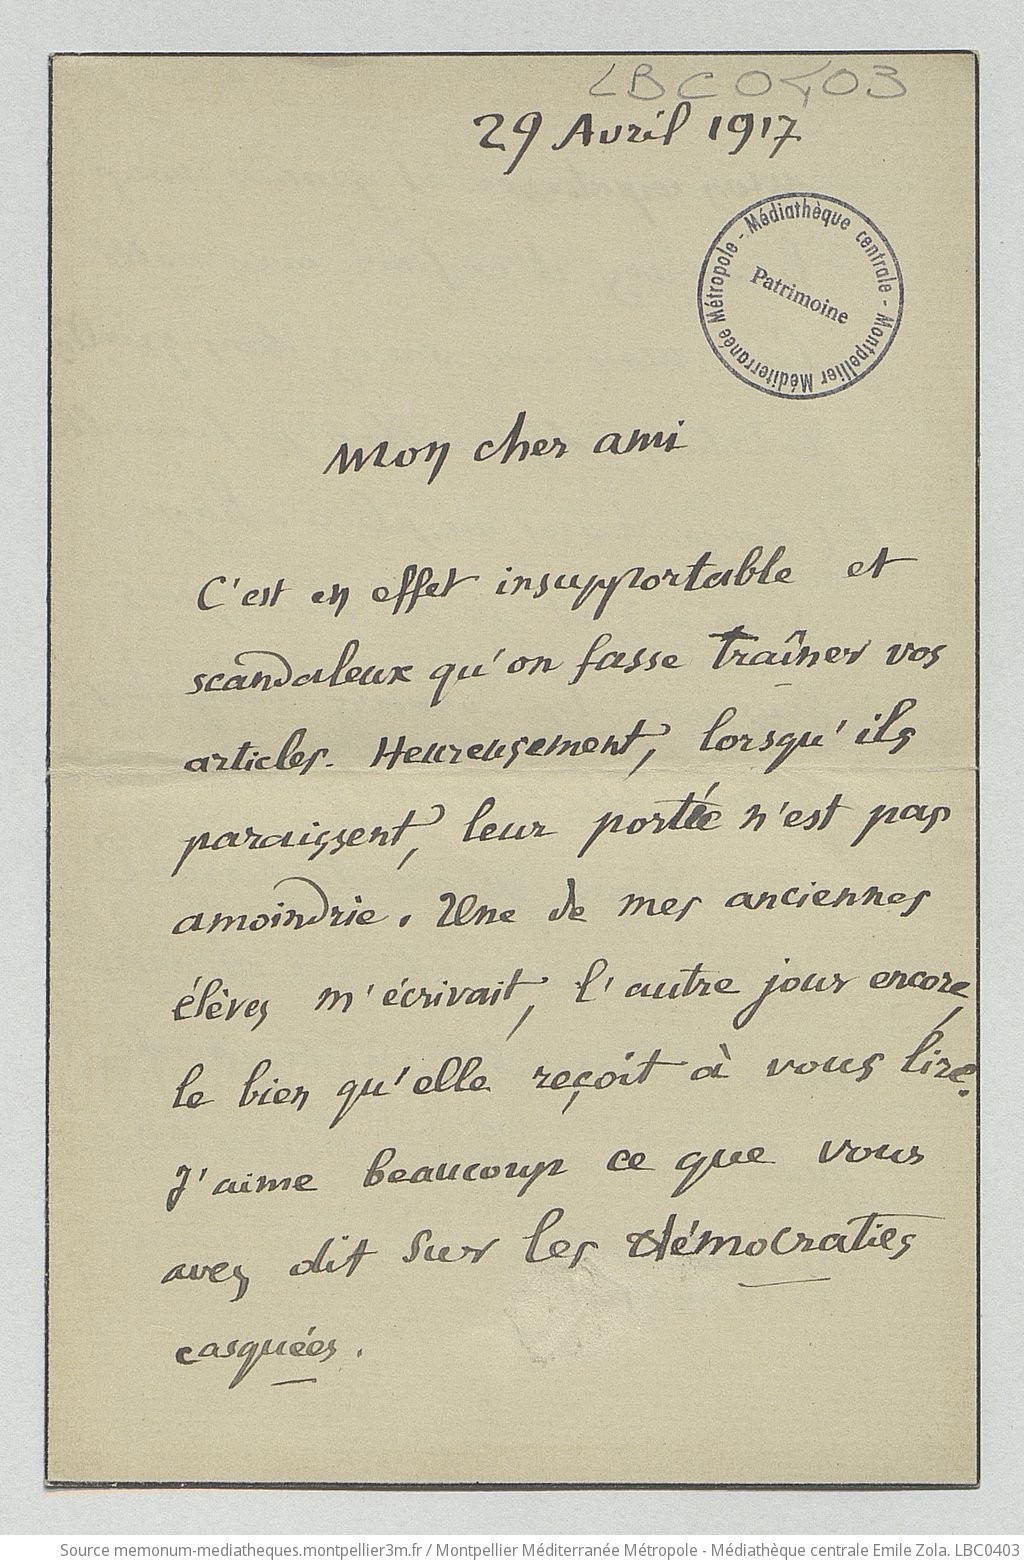 LBC0403
29 Avril 1917
Montpellier Méditerranée Métropole - Médiathèque centrale -
Patrimoine
Mon cher ami
C'est en effet insupportable et
scandaleux qu'on fasse traîner vos
articles. Heureusement, lorsqu'ils
paraissent, leur portée n'est pas
amoindrie. Une de mes anciennes
élèves m'écrivait, l'autre jour encore,
le bien qu'elle reçoit à vous lire.
J'aime beaucoup ce que vous
avez dit sur les démocraties
casquées.
Source memonum-mediatheques.montpellier3m.fr / Montpellier Méditerranée Métropole - Médiathèque centrale Emile Zola. LBC0403